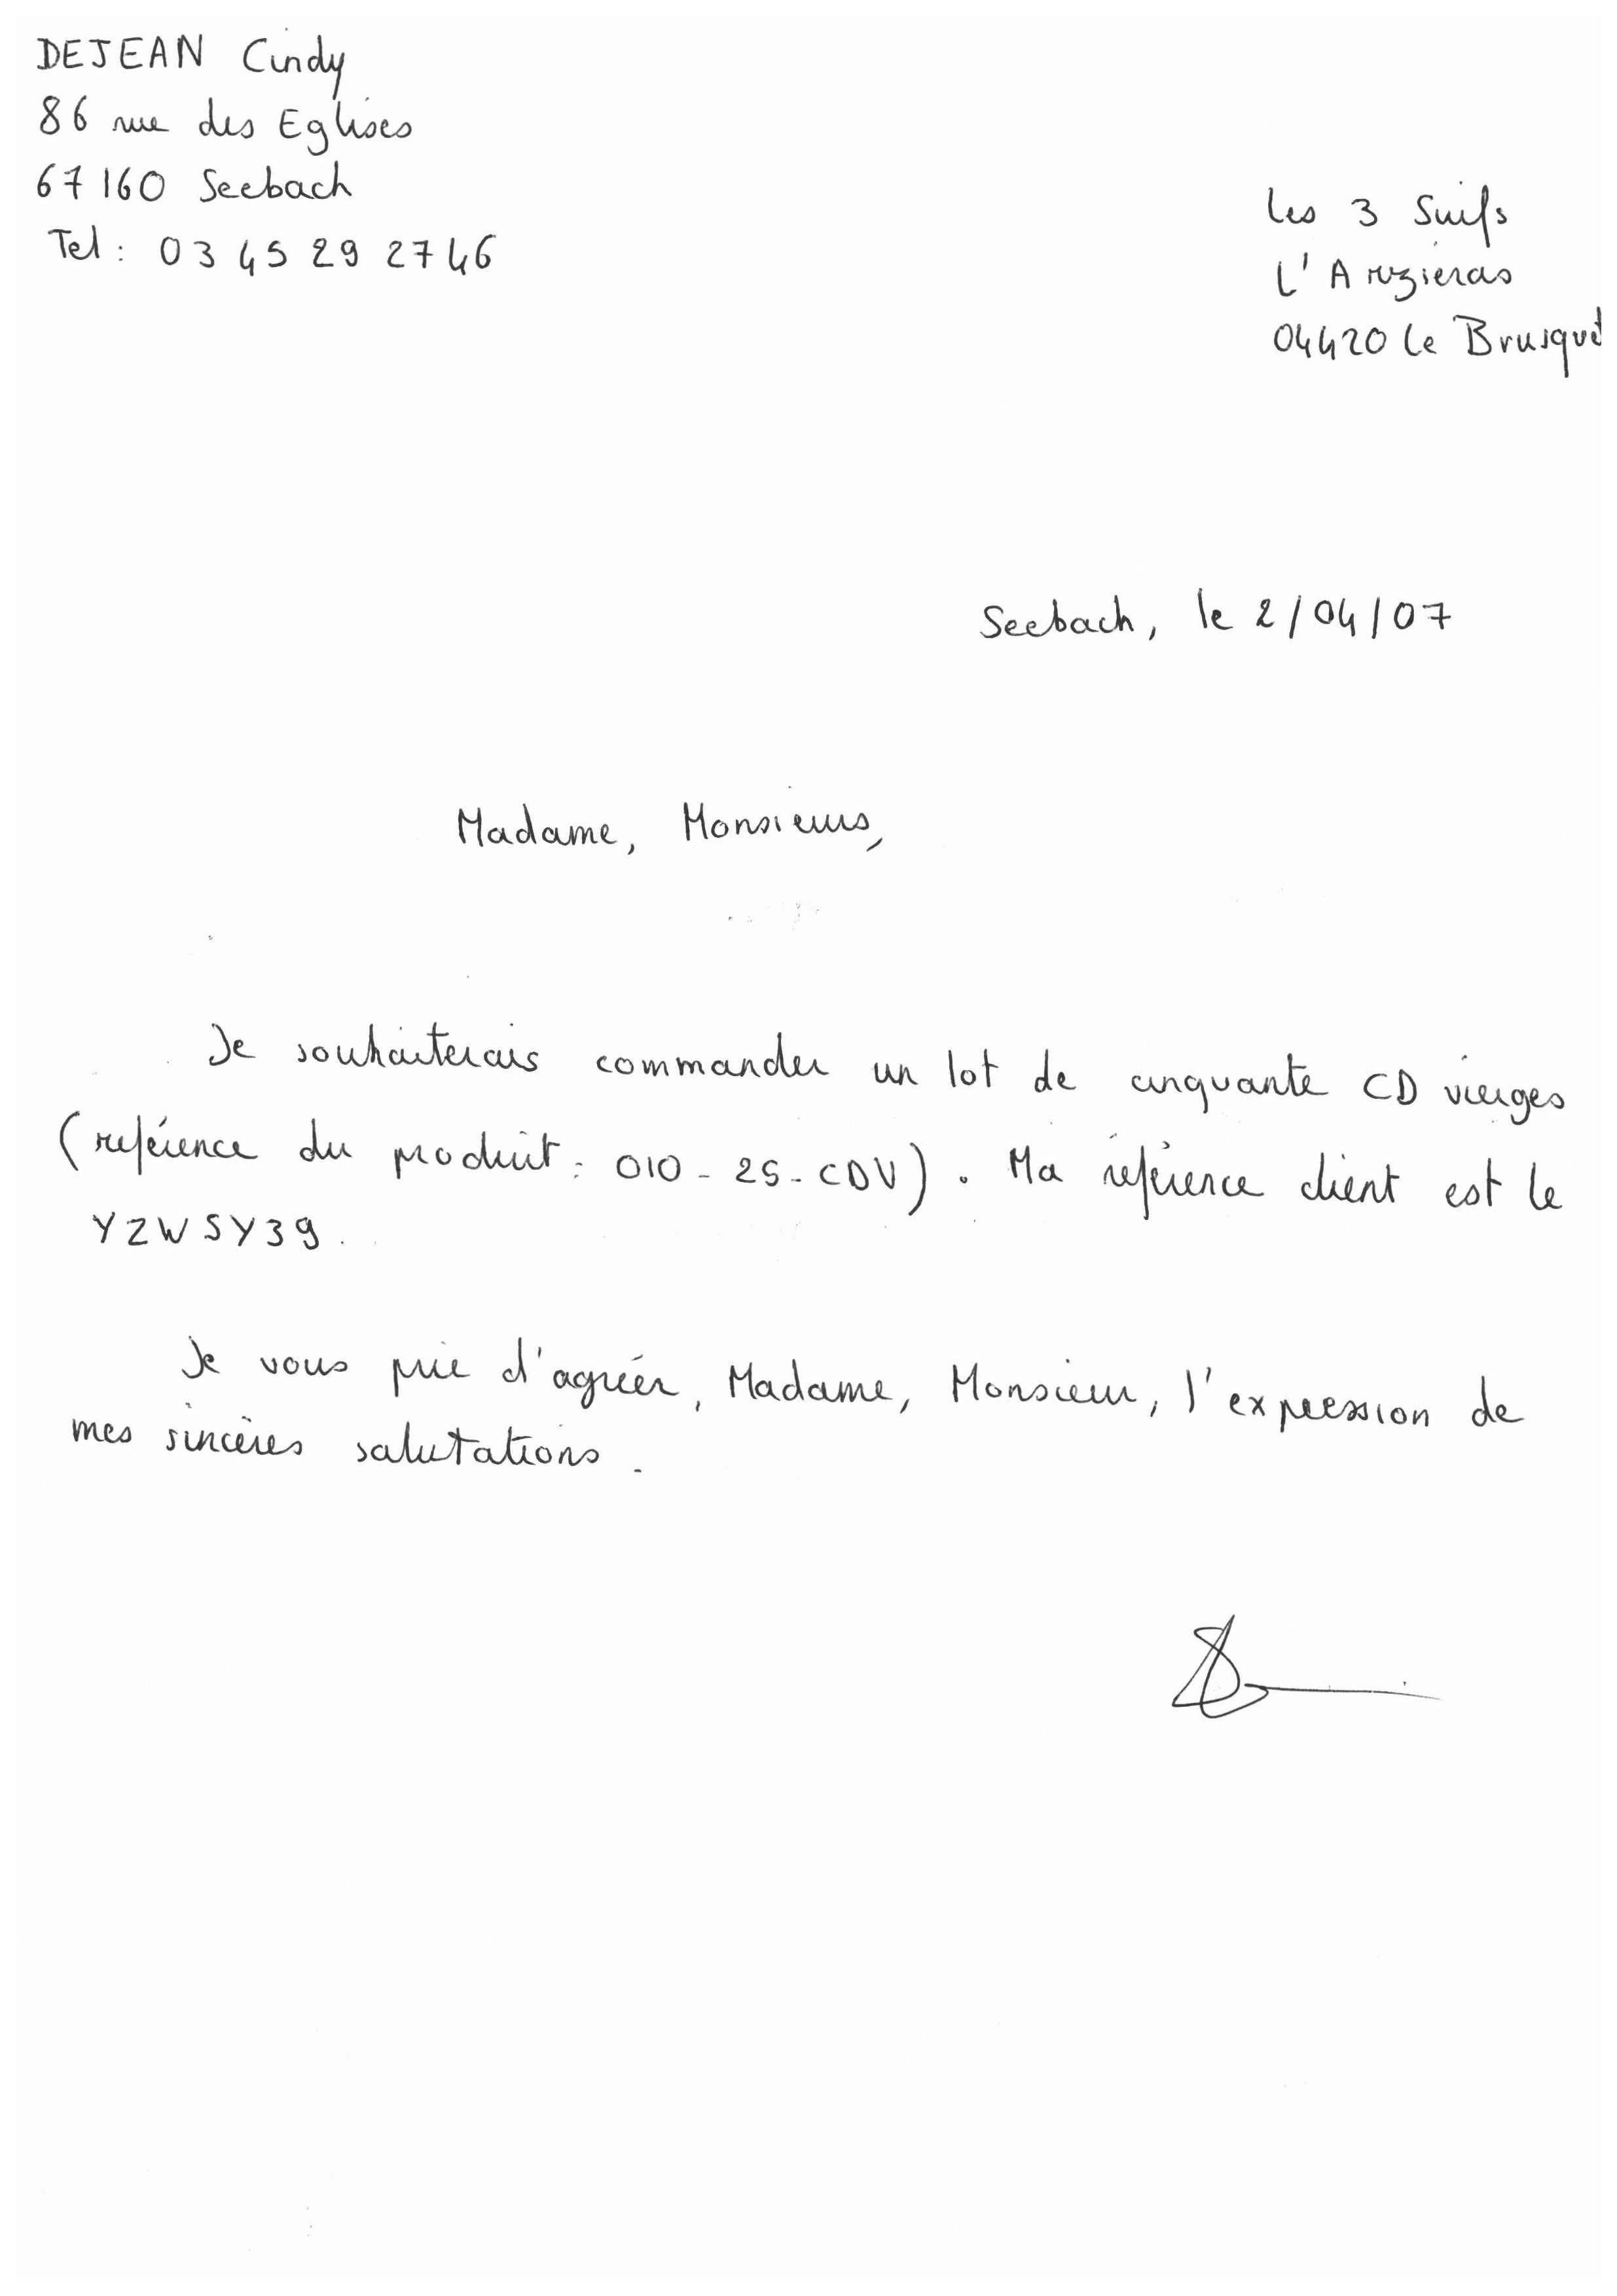 DEJEAN Cindy
86 rue des Eglises
67160 Seebach
Tel : 03 45 29 27 46
Les 3 Suifs
L'Arzieras
04420 Le Brusquet
Seebach, le 2/04/07
Madame, Monsieurs,
Je souhaiterais commander un lot de cinquante CD vierges
(reférence du produit : 010 - 25 - CDV). Ma référence client est le
YZWSY39.
Je vous prie d'agréer, Madame, Monsieur, l'expression de
mes sincères salutations.